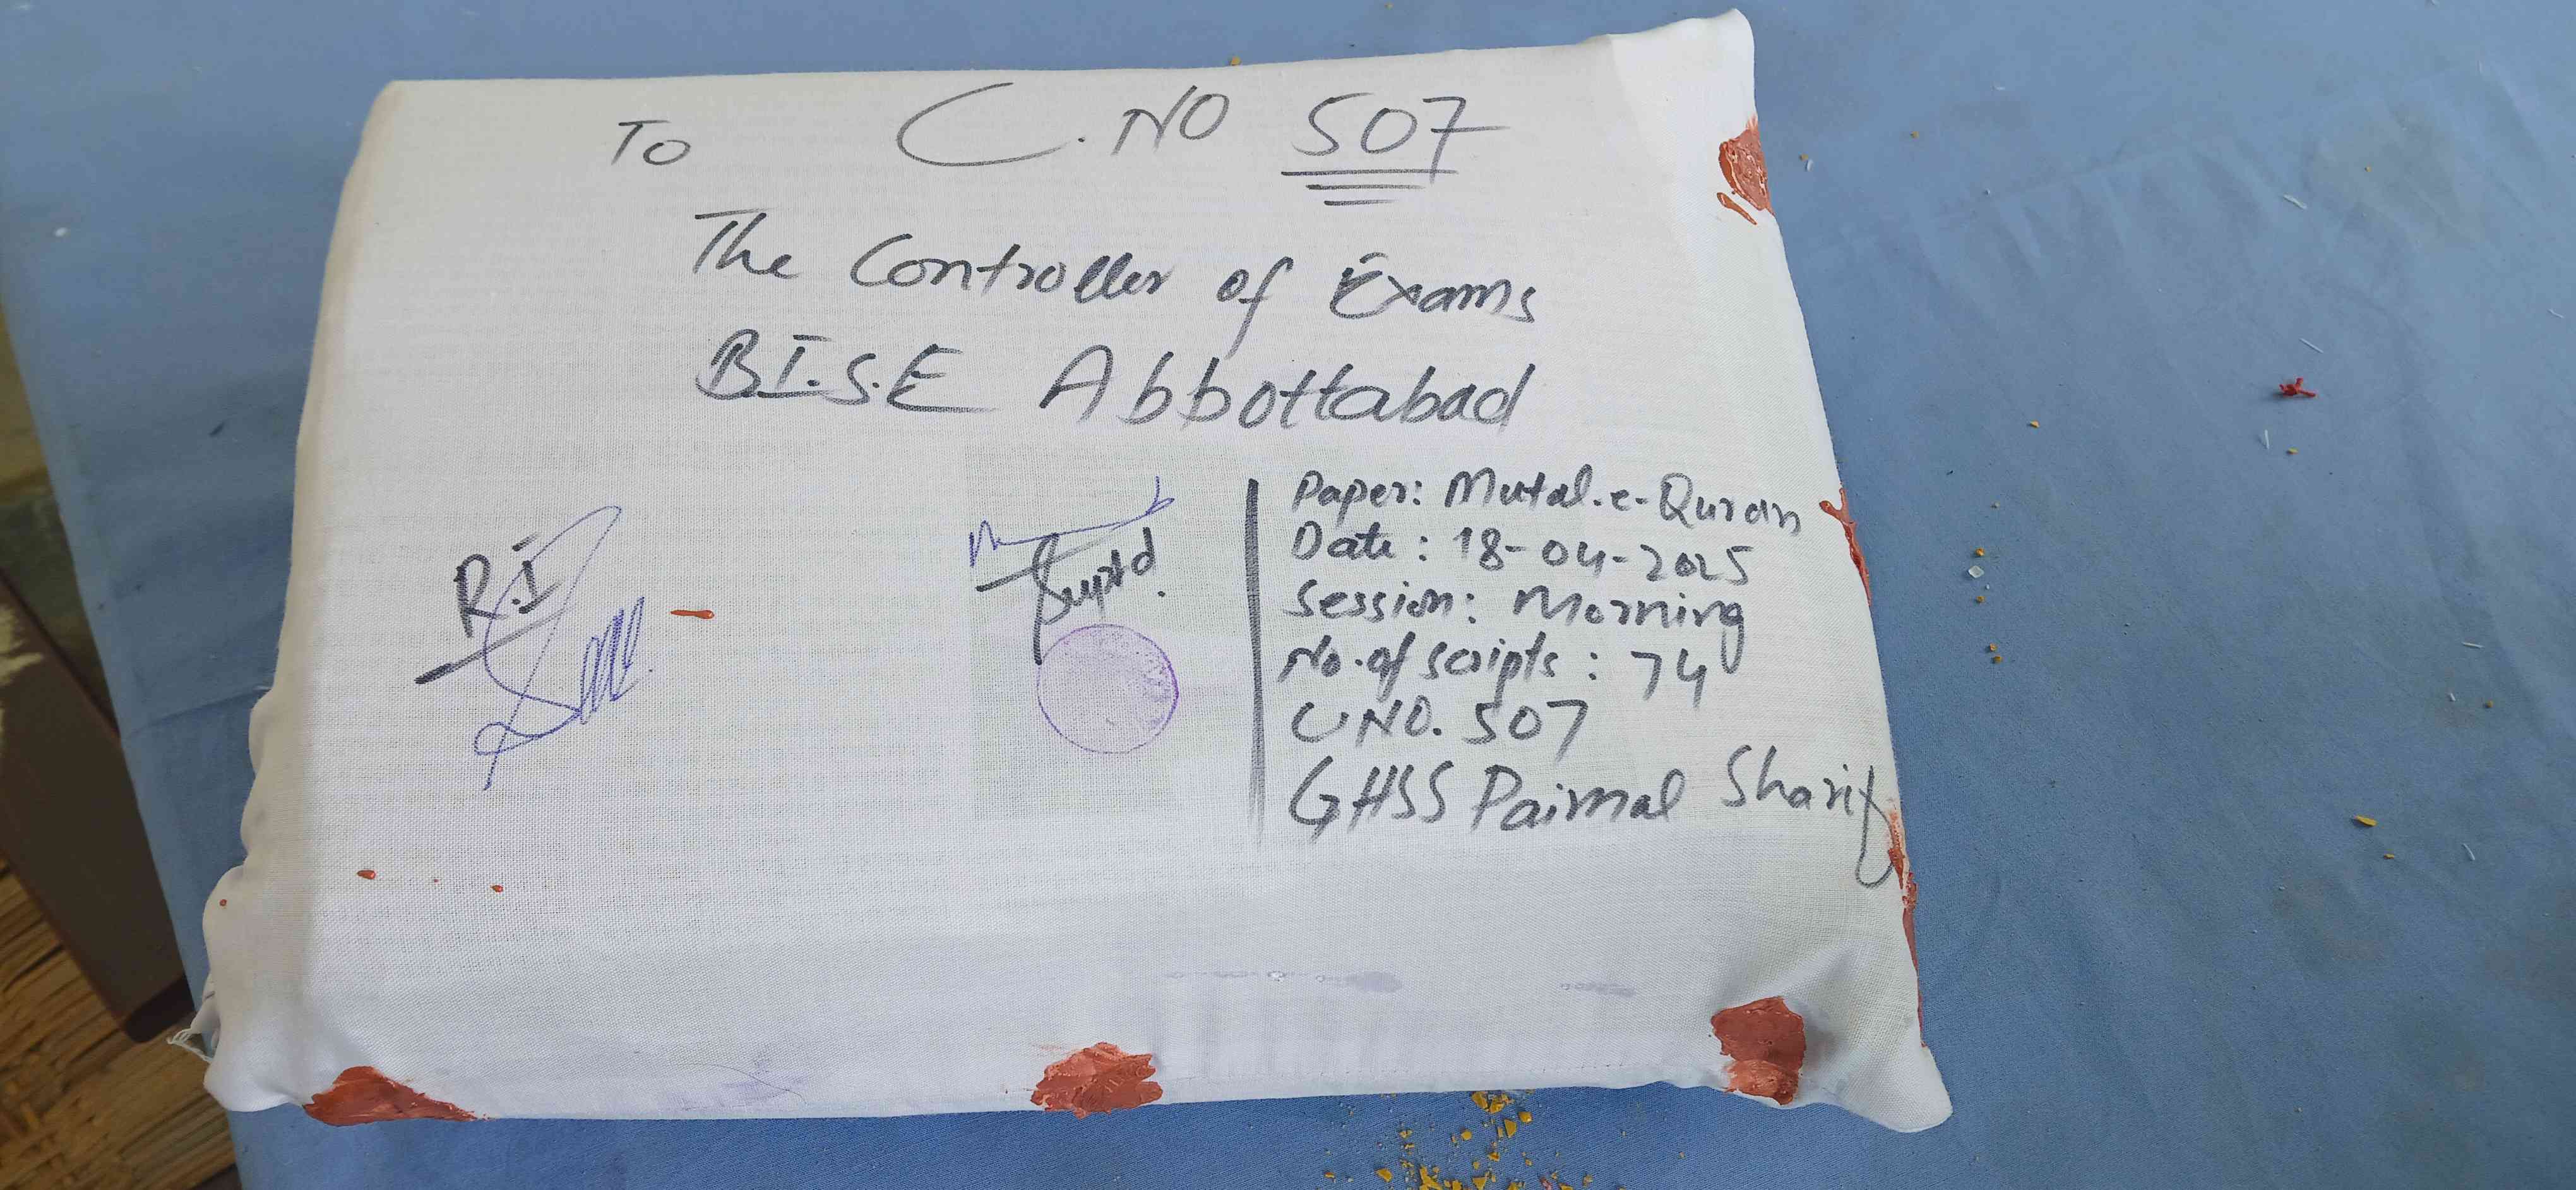 To C. NO 507
The Controller of Exams
B.I.S.E Abbottabad
R.I
Suptd.
Paper: Mutal.e.Quran
Date: 18-04-2025
Session: Morning
No. of scripts: 74
C NO. 507
GHSS Paimal Sharif